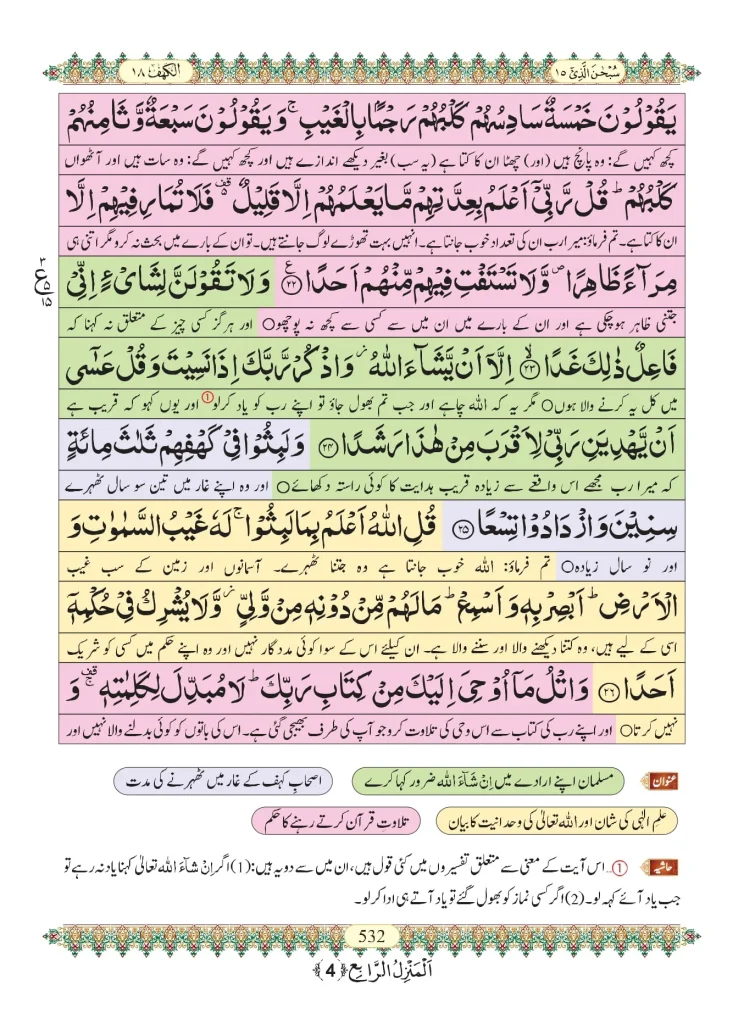 سُبْحٰنَ الَّذِیْۤ ١٥
الکہف ١٨
یَقُوْلُوْنَ خَمْسَةٌ سَادِسُهُمْ كَلْبُهُمْ رَجْمًۢا بِالْغَیْبِۚ وَ یَقُوْلُوْنَ سَبْعَةٌ وَّ ثَامِنُهُمْ
کچھ کہیں گے: وہ پانچ ہیں (اور) چھٹا ان کا کتا ہے (یہ سب) بغیر دیکھے اندازے ہیں اور کچھ کہیں گے: وہ سات ہیں اور آٹھواں
كَلْبُهُمْؕ قُلْ رَّبِّیْۤ اَعْلَمُ بِعِدَّتِهِمْ مَّا یَعْلَمُهُمْ اِلَّا قَلِیْلٌ۫ فَلَا تُمَارِ فِیْهِمْ اِلَّا
ان کا کتا ہے۔ تم فرماؤ: میرا رب ان کی تعداد خوب جانتا ہے۔ انہیں بہت تھوڑے لوگ جانتے ہیں۔ تو ان کے بارے میں بحث نہ کرو مگر اتنی ہی
مِرَآءً ظَاهِرًا۪ وَّ لَا تَسْتَفْتِ فِیْهِمْ مِّنْهُمْ اَحَدًا ﴿۲۲﴾ وَ لَا تَقُوْلَنَّ لِشَایْءٍ اِنِّیْ
جتنی ظاہر ہو چکی ہے اور ان کے بارے میں ان میں سے کسی سے کچھ نہ پوچھو○ اور ہرگز کسی چیز کے متعلق نہ کہنا کہ
فَاعِلٌ ذٰلِكَ غَدًا ﴿۲۳﴾ اِلَّاۤ اَنْ یَّشَآءَ اللّٰهُ٘ وَ اذْكُرْ رَّبَّكَ اِذَا نَسِیْتَ وَ قُلْ عَسٰۤى
میں کل یہ کرنے والا ہوں○ مگر یہ کہ اللہ چاہے اور جب تم بھول جاؤ تو اپنے رب کو یاد کرلو① اور یوں کہو کہ قریب ہے
اَنْ یَّهْدِیَنِ رَبِّیْ لِاَقْرَبَ مِنْ هٰذَا رَشَدًا ﴿۲۴﴾ وَ لَبِثُوْا فِیْ كَهْفِهِمْ ثَلٰثَ مِائَةٍ
کہ میرا رب مجھے اس واقعے سے زیادہ قریب ہدایت کا کوئی راستہ دکھائے○ اور وہ اپنے غار میں تین سو سال ٹھہرے
سِنِیْنَ وَ ازْدَادُوْا تِسْعًا ﴿۲۵﴾ قُلِ اللّٰهُ اَعْلَمُ بِمَا لَبِثُوْاۚ لَهٗ غَیْبُ السَّمٰوٰتِ وَ
اور نو سال زیادہ○ تم فرماؤ: اللہ خوب جانتا ہے وہ جتنا ٹھہرے۔ آسمانوں اور زمین کے سب غیب
الْاَرْضِؕ اَبْصِرْ بِهٖ وَ اَسْمِعْؕ مَا لَهُمْ مِّنْ دُوْنِهٖ مِنْ وَّلِیٍّ٘ وَّ لَا یُشْرِكُ فِیْ حُكْمِهٖۤ
اسی کے لیے ہیں، وہ کتنا دیکھنے والا اور سننے والا ہے۔ ان کیلئے اس کے سوا کوئی مددگار نہیں اور وہ اپنے حکم میں کسی کو شریک
اَحَدًا ﴿۲۶﴾ وَ اتْلُ مَاۤ اُوْحِیَ اِلَیْكَ مِنْ كِتَابِ رَبِّكَؕ لَا مُبَدِّلَ لِكَلِمٰتِهٖ۫ۚ وَ
نہیں کرتا○ اور اپنے رب کی کتاب سے اس وحی کی تلاوت کرو جو آپ کی طرف بھیجی گئی ہے۔ اس کی باتوں کو کوئی بدلنے والا نہیں اور
عنوان مسلمان اپنے ارادے میں اِنْ شَآءَ اللہ ضرور کہا کرے اصحابِ کہف کے غار میں ٹھہرنے کی مدت
علمِ الٰہی کی شان اور اللہ تعالیٰ کی وحدانیت کا بیان تلاوتِ قرآن کرتے رہنے کا حکم
حاشیہ ①... اس آیت کے معنی سے متعلق تفسیروں میں کئی قول ہیں، ان میں سے دو یہ ہیں: (1) اگر اِنْ شَآءَ اللہ تعالیٰ کہنا یاد نہ رہے تو
جب یاد آئے کہہ لو۔ (2) اگر کسی نماز کو بھول گئے تو یاد آتے ہی ادا کر لو۔
532
اَلْمَنْزِلُ الرَّابِع ﴿4﴾